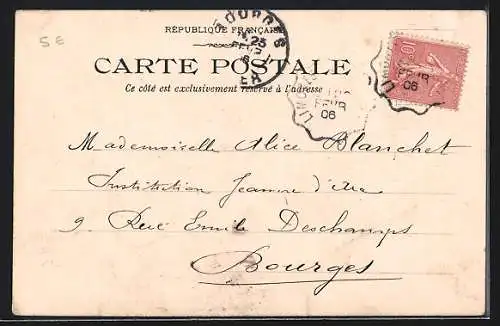 5 E
RÉPUBLIQUE FRANÇAISE
BOURGES
23
FEVR
CHER
CARTE POSTALE
Ce côté est exclusivement réservé à l'adresse
10
FEVR
06
FEVR
06
Mademoiselle Alice Blanchet
Institution Jeanne d'Arc
9. Rue Emile Deschamps
Bourges